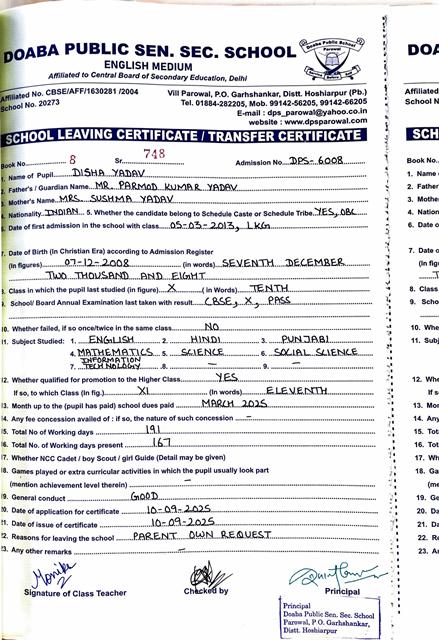 DOABA PUBLIC SEN. SEC. SCHOOL
Doaba Public School
Parowal
ENGLISH MEDIUM
Affiliated to Central Board of Secondary Education, Delhi
Affiliated No. CBSE/AFF/1630281 /2004
School No. 20273
Vill Parowal, P.O. Garhshankar, Distt. Hoshiarpur (Pb.)
Tel. 01884-282205, Mob. 99142-56205, 99142-66205
E-mail : dps_parowal@yahoo.co.in
website : www.dpsparowal.com
SCHOOL LEAVING CERTIFICATE / TRANSFER CERTIFICATE
Book No. 8 Sr. 748 Admission No. DPS-6008
1. Name of Pupil DISHA YADAV
2. Father's / Guardian Name MR. PARMOD KUMAR YADAV
3. Mother's Name MRS. SUSHMA YADAV
4. Nationality INDIAN 5. Whether the candidate belong to Schedule Caste or Schedule Tribe YES, OBC
6. Date of first admission in the school with class 05-03-2013, LKG
7. Date of Birth (In Christian Era) according to Admission Register
(In figures) 07-12-2008 (in words) SEVENTH DECEMBER
TWO THOUSAND AND EIGHT
8. Class in which the pupil last studied (in figure) X (in Words) TENTH
9. School/ Board Annual Examination last taken with result CBSE, X, PASS
10. Whether failed, if so once/twice in the same class NO
11. Subject Studied: 1. ENGLISH 2. HINDI 3. PUNJABI
4. MATHEMATICS 5. SCIENCE 6. SOCIAL SCIENCE
7. INFORMATION TECHNOLOGY 8. – 9. –
12. Whether qualified for promotion to the Higher Class YES
If so, to which Class (in fig.) XI (in Words) ELEVENTH
13. Month up to the (pupil has paid) school dues paid MARCH 2025
14. Any fee concession availed of : if so, the nature of such concession –
15. Total No of Working days 191
16. Total No. of Working days present 167
17. Whether NCC Cadet / boy Scout / girl Guide (Detail may be given)
18. Games played or extra curricular activities in which the pupil usually look part
(mention achievement level therein) –
19. General conduct GOOD
20. Date of application for certificate 10-09-2025
21. Date of issue of certificate 10-09-2025
22. Reasons for leaving the school PARENT OWN REQUEST
23. Any other remarks –
Monika
Signature of Class Teacher Checked by Principal
Principal
Doaba Public Sen. Sec. School
Parowal, P.O. Garhshankar,
Distt. Hoshiarpur